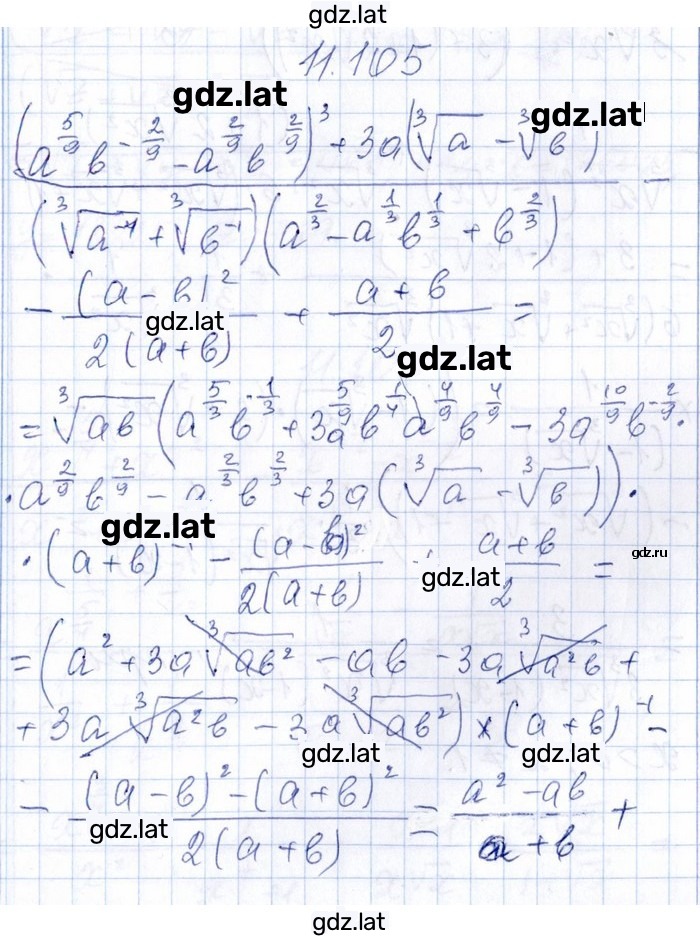 gdz.lat
11.105
gdz.lat
gdz.lat
(a^{5/9} b^{-2/9} - a^{2/9} b^{2/9})^3 + 3a(∛a - ∛b)
/ (∛(a^{-1}) + ∛(b^{-1}))(a^{2/3} - a^{1/3} b^{1/3} + b^{2/3}) -
- (a - b)^2 / 2(a + b) + (a + b) / 2 =
gdz.lat
gdz.lat
= ∛(ab) (a^{5/3} b^{-1/3} + 3a^{5/9} b^{1/4} a^{4/9} b^{4/9} - 3a^{10/9} b^{-2/9} ·
· a^{2/9} b^{2/9} - a^{2/3} b^{2/3} + 3a(∛a - ∛b)) ·
gdz.lat
gdz.ru
· (a + b)^{-1} - (a - b)^2 / 2(a + b) + (a + b) / 2 =
gdz.lat
= (a^2 + 3a∛(ab^2) - ab - 3a∛(a^2 b) +
+ 3a∛(a^2 b) - 3a∛(ab^2)) × (a + b)^{-1} -
gdz.lat
gdz.lat
- ((a - b)^2 - (a + b)^2) / 2(a + b) = (a^2 - ab) / (a + b) +
gdz.lat
gdz.lat